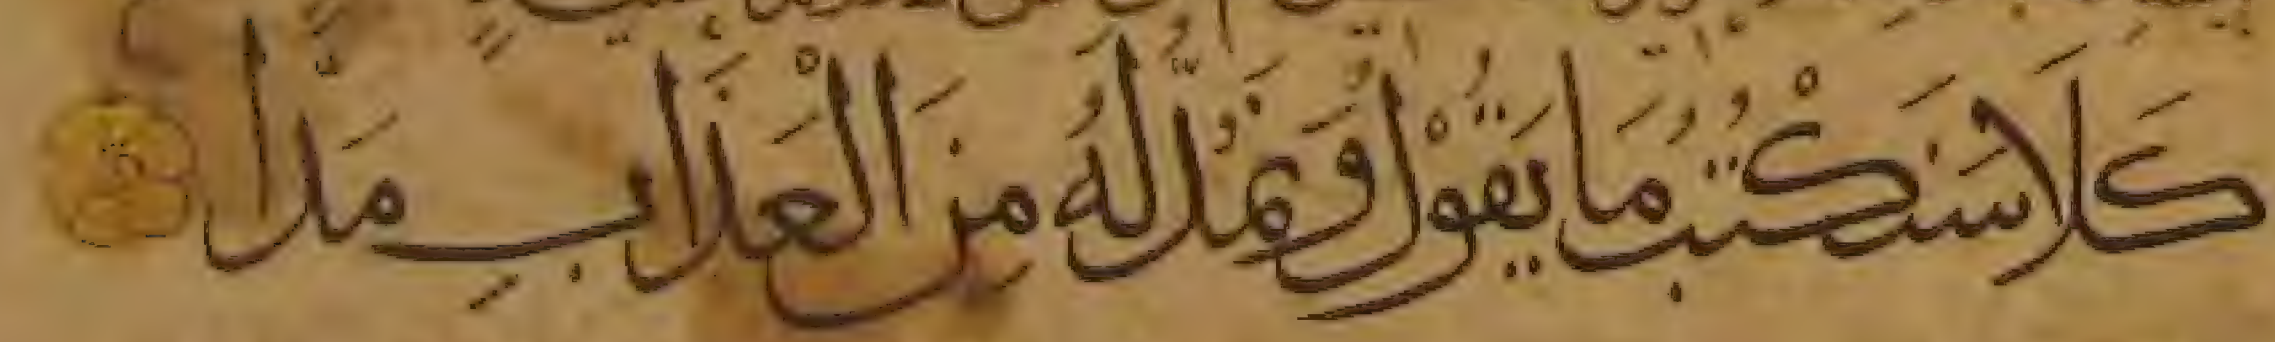 كَلَّا سَنَكْتُبُ مَا يَقُوْلُ وَنَمُدُّ لَهُ مِنَ الْعَذَابِ مَدًّا